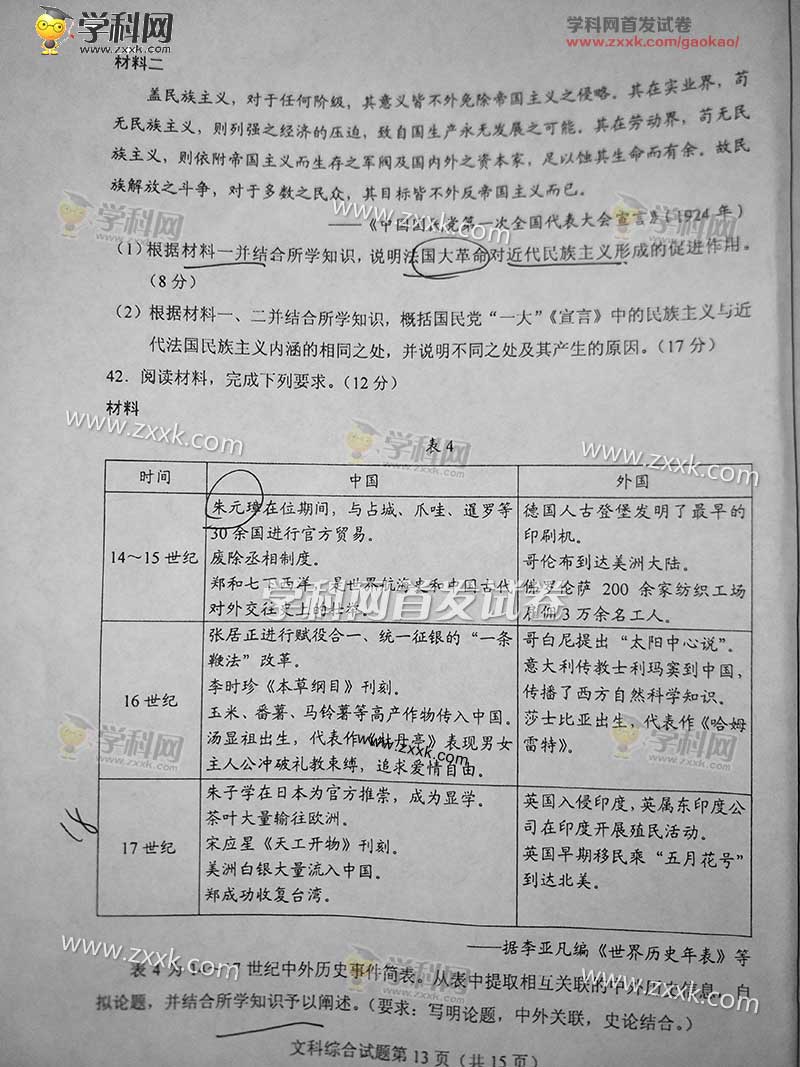 学科网
www.zxxk.com
学科网首发试卷
www.zxxk.com/gaokao/
材料二
盖民族主义，对于任何阶级，其意义皆不外免除帝国主义之侵略。其在实业界，苟
无民族主义，则列强之经济的压迫，致自国生产永无发展之可能。其在劳动界，苟无民
族主义，则依附帝国主义而生存之军阀及国内外之资本家，足以蚀其生命而有余。故民
族解放之斗争，对于多数之民众，其目标皆不外反帝国主义而已。
——《中国国民党第一次全国代表大会宣言》（1924 年）
（1）根据材料一并结合所学知识，说明法国大革命对近代民族主义形成的促进作用。
（8 分）
（2）根据材料一、二并结合所学知识，概括国民党“一大”《宣言》中的民族主义与近
代法国民族主义内涵的相同之处，并说明不同之处及其产生的原因。（17 分）
42．阅读材料，完成下列要求。（12 分）
材料
表 4
时间 中国 外国
14～15 世纪
朱元璋在位期间，与占城、爪哇、暹罗等
30 余国进行官方贸易。
废除丞相制度。
郑和七下西洋，是世界航海史和中国古代
对外交往史上的壮举。
德国人古登堡发明了最早的
印刷机。
哥伦布到达美洲大陆。
佛罗伦萨 200 余家纺织工场
雇佣 3 万余名工人。
16 世纪
张居正进行赋役合一、统一征银的“一条
鞭法”改革。
李时珍《本草纲目》刊刻。
玉米、番薯、马铃薯等高产作物传入中国。
汤显祖出生，代表作《牡丹亭》表现男女
主人公冲破礼教束缚，追求爱情自由。
哥白尼提出“太阳中心说”。
意大利传教士利玛窦到中国，
传播了西方自然科学知识。
莎士比亚出生，代表作《哈姆
雷特》。
17 世纪
朱子学在日本为官方推崇，成为显学。
茶叶大量输往欧洲。
宋应星《天工开物》刊刻。
美洲白银大量流入中国。
郑成功收复台湾。
英国入侵印度，英属东印度公
司在印度开展殖民活动。
英国早期移民乘“五月花号”
到达北美。
——据李亚凡编《世界历史年表》等
表 4 为 14～17 世纪中外历史事件简表。从表中提取相互关联的中外历史信息，自
拟论题，并结合所学知识予以阐述。（要求：写明论题，中外关联，史论结合。）
文科综合试题第 13 页（共 15 页）